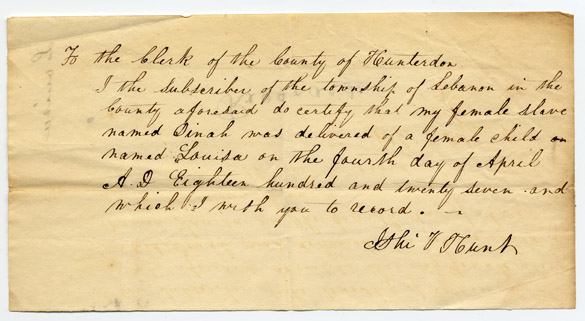 To the Clerk of the County of Hunterdon
I the Subscriber of the township of Lebanon in the
County aforesaid do certify that my female slave
named Dinah was delivered of a female child on
named Louisa on the fourth day of April
A.D Eighteen hundred and twenty seven and
which I wish you to record.
Ishi V Hunt